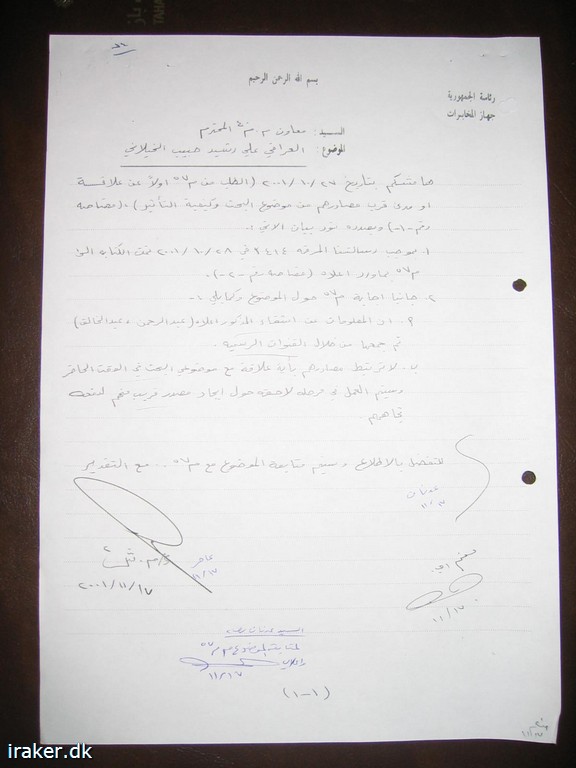 بسم الله الرحمن الرحيم
رئاسة الجمهورية
جهاز المخابرات
السيد : معاون م . م٤ المحترم
الموضوع : العراقي علي رشيد حبيب الخيلاني
هامشكم بتاريخ ٢٧ / ١٠ / ٢٠٠١ ( الطلب من م٥٧ اولاً عن علاقة
او مدى قرب مصادرهم من موضوع البحث وكيفية التأثير ) .
رقم -١- ) وبصدده نود بيان الاتي :
١. بموجب رسالتنا المرقمة ٩٤١٤ في ٢٨ / ١٠ / ٢٠٠١ تمت الكتابة الى
م٥٧ بما ورد اعلاه ( رقم -٢- ) .
٢. اجابة م٥٧ حول الموضوع وكما يلي :-
أ. ان المعلومات عن اشقاء المذكور اعلاه ( عبدالرحمن وعبدالخالق )
تم جمعها من خلال القنوات الرسمية .
ب. لا ترتبط مصادرهم بأية علاقة مع موضوعي البحث في الوقت الحاضر
وسيتم العمل في مرحلة لاحقة حول ايجاد مصدر قريب منهم
للتفضل بالاطلاع وسيتم متابعة الموضوع مع م٥٧ .. مع التقدير
عدنان
١١/١٧
عامر
١١/١٧
٢٠٠١/١١/١٧
١١/١٧
السيد عدنان
لمتابعة الموضوع مع م٥٧
١١/١٧
(١-١)
١١/١٧
iraker.dk